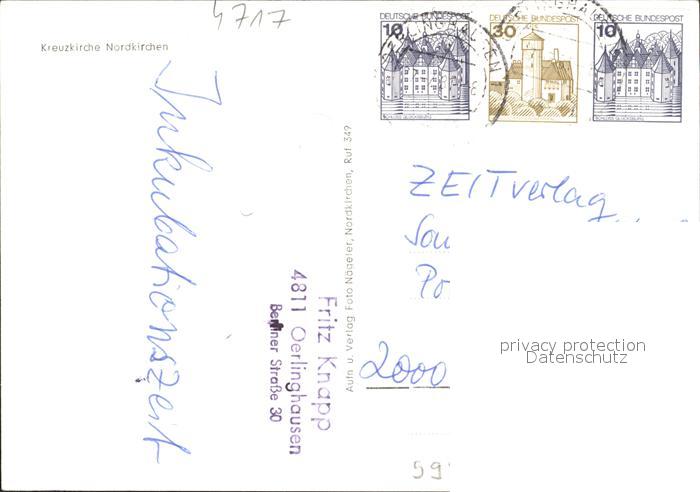 4717
Kreuzkirche Nordkirchen
DEUTSCHE BUNDESPOST
10
SCHLOSS GLÜCKSBURG
DEUTSCHE BUNDESPOST
30
DEUTSCHE BUNDESPOST
10
SCHLOSS GLÜCKSBURG
OERLINGHAUSEN
Inkubationszeit
Fritz Knapp
4811 Oerlinghausen
Berliner Straße 30
Aufn u. Verlag Foto Nägeler, Nordkirchen, Ruf 349
ZEITverlag
Po
2000
privacy protection
Datenschutz